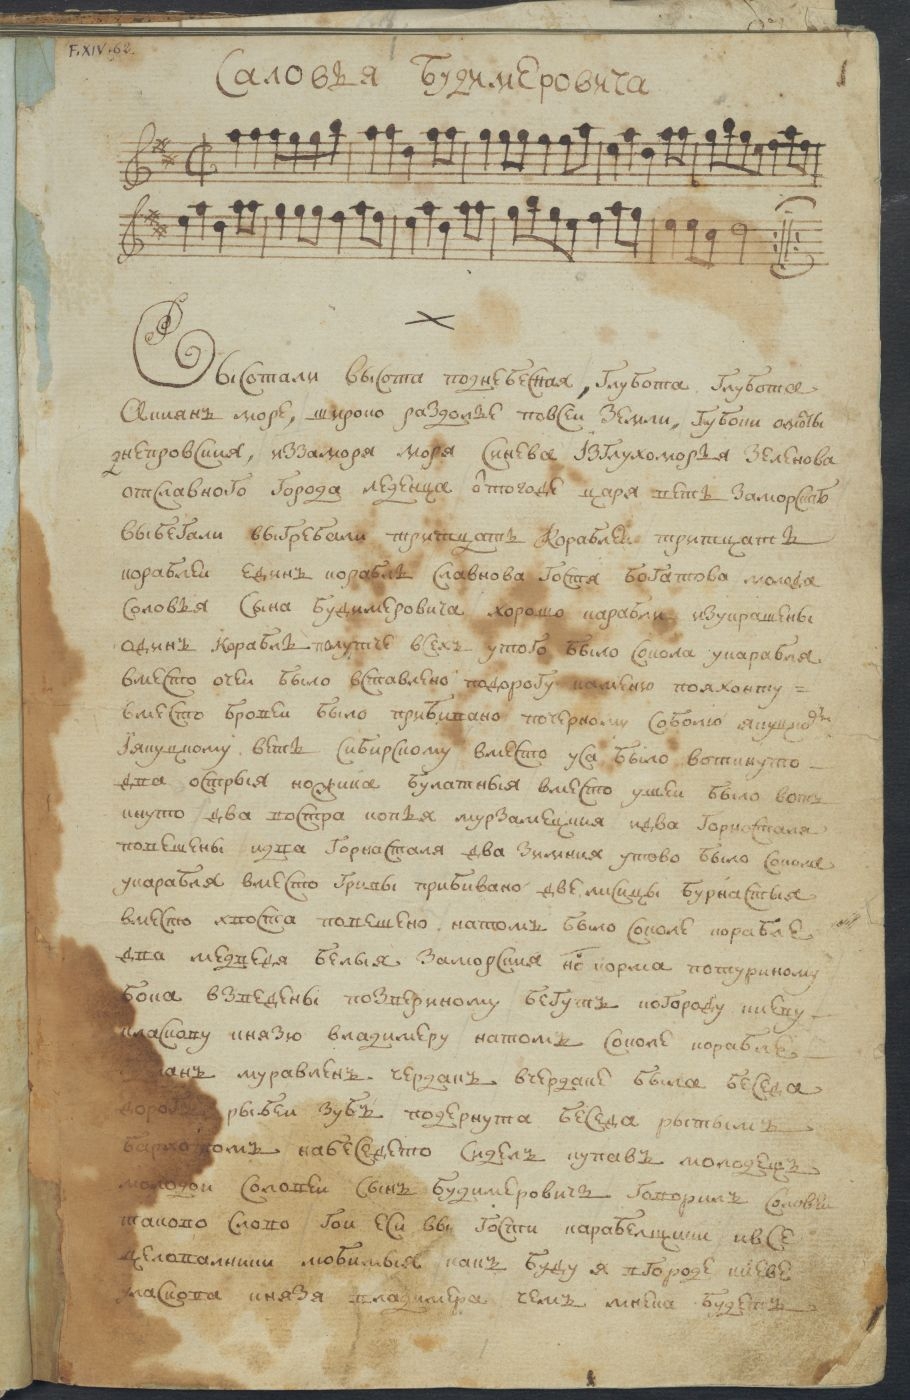 F.XIV.62.
1
Саловья Будимеровича
Высотали высота поднебесная, глубота глубота
Акиянъ море, широко раздолье повсеи земли, губоки омоты
днепровския, иззаморя моря синева изглухоморья зеленова
отславного города леденца оттогоде царя ветъ заморскъ
выбегали выгребали тритцать кораблеи тритцать
кораблеи единъ корабль славнова гостя богатова молода
соловья сына будимеровича хорошо карабли изукрашены
одинъ корабль полутче всехъ утого было сокола укарабля
вместо очеи было вставлено подорогу каменю пояхонту =
вместо бровеи было прибивано почерному соболю якуцко
Iякуцкому ветъ сибирскому вместо уса было воткнуто
два острыя ножика булатныя вместо ушеи было вотк
кнуто два востра копья мурзамецкия идва горнасталя
повешены идва горнасталя два зимния утово было сокола
укарабля вместо гривы прибивано две лисицы бурнастыя
вместо хвоста повешено натомъ было соколе корабле
два медведя белыя заморския нос корма потуриному
бока взведены позвериному бегутъ когороду киеву
класкову князю владимеру натомъ соколе корабле
муравленъ чердакъ вчердаке была беседа
дорогъ рыбеи зубъ подернута беседа рытымъ
бархотомъ набеседето сиделъ купавъ молодецъ
молодои соловеи сынъ будимеровичъ говорилъ соловеи
таково слово гои еси вы гости карабелщики ивсе
целовалники любимыя какъ буду я вгороде киеве
уласкова князя владимера чемъ мнека будетъ